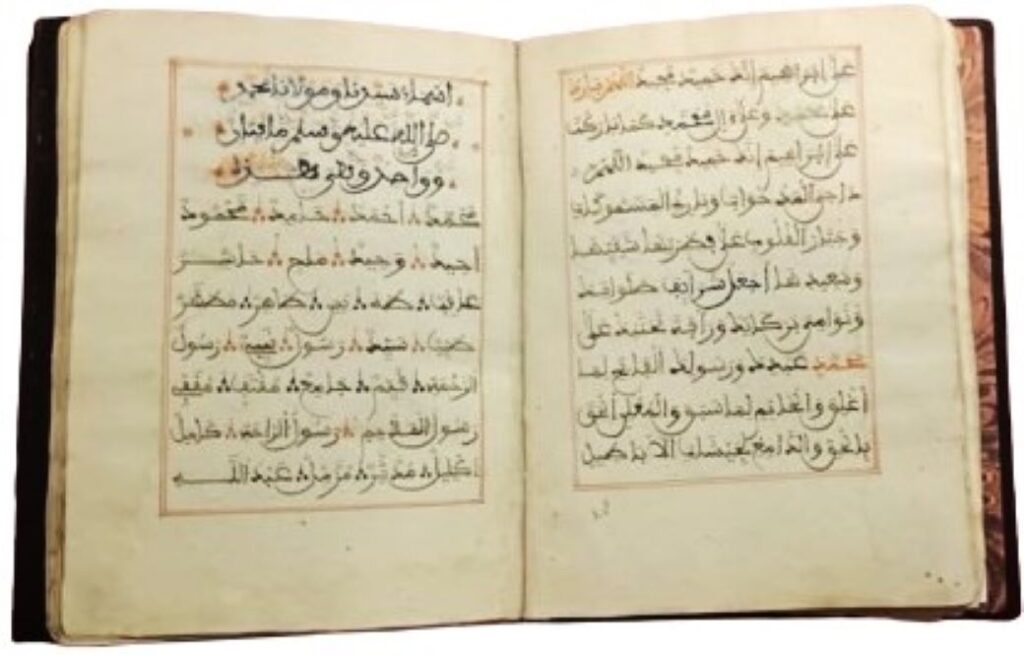 على ابراهيم إنك حميد مجيد اللهم بارك
على محمد وعلى ءال محمد كما باركت
على ابراهيم إنك حميد مجيد اللهم
داحي المدحوات وبارئ المسموكات
وجبار القلوب على فطرتها شقيها
وسعيدها اجعل شرائف صلواتك
ونوامي بركاتك ورافة تحننك على
محمد عبدك ورسولك الفاتح لما
أغلق والخاتم لما سبق والمعلن الحق
بالحق والدامغ لجيشات الاباطيل
اسماء سيدنا ومولانا محمد
صلى الله عليه وسلم مائتان
وواحد وهي هذه
محمد احمد حامد محمود
احيد وحيد ماح حاشر
عاقب طه يس طاهر مطهر
طيب سيد رسول نبي رسول
الرحمة قيم جامع مقتف مقفى
رسول الملاحم رسول الراحة كامل
اكليل مدثر مزمل عبد الله